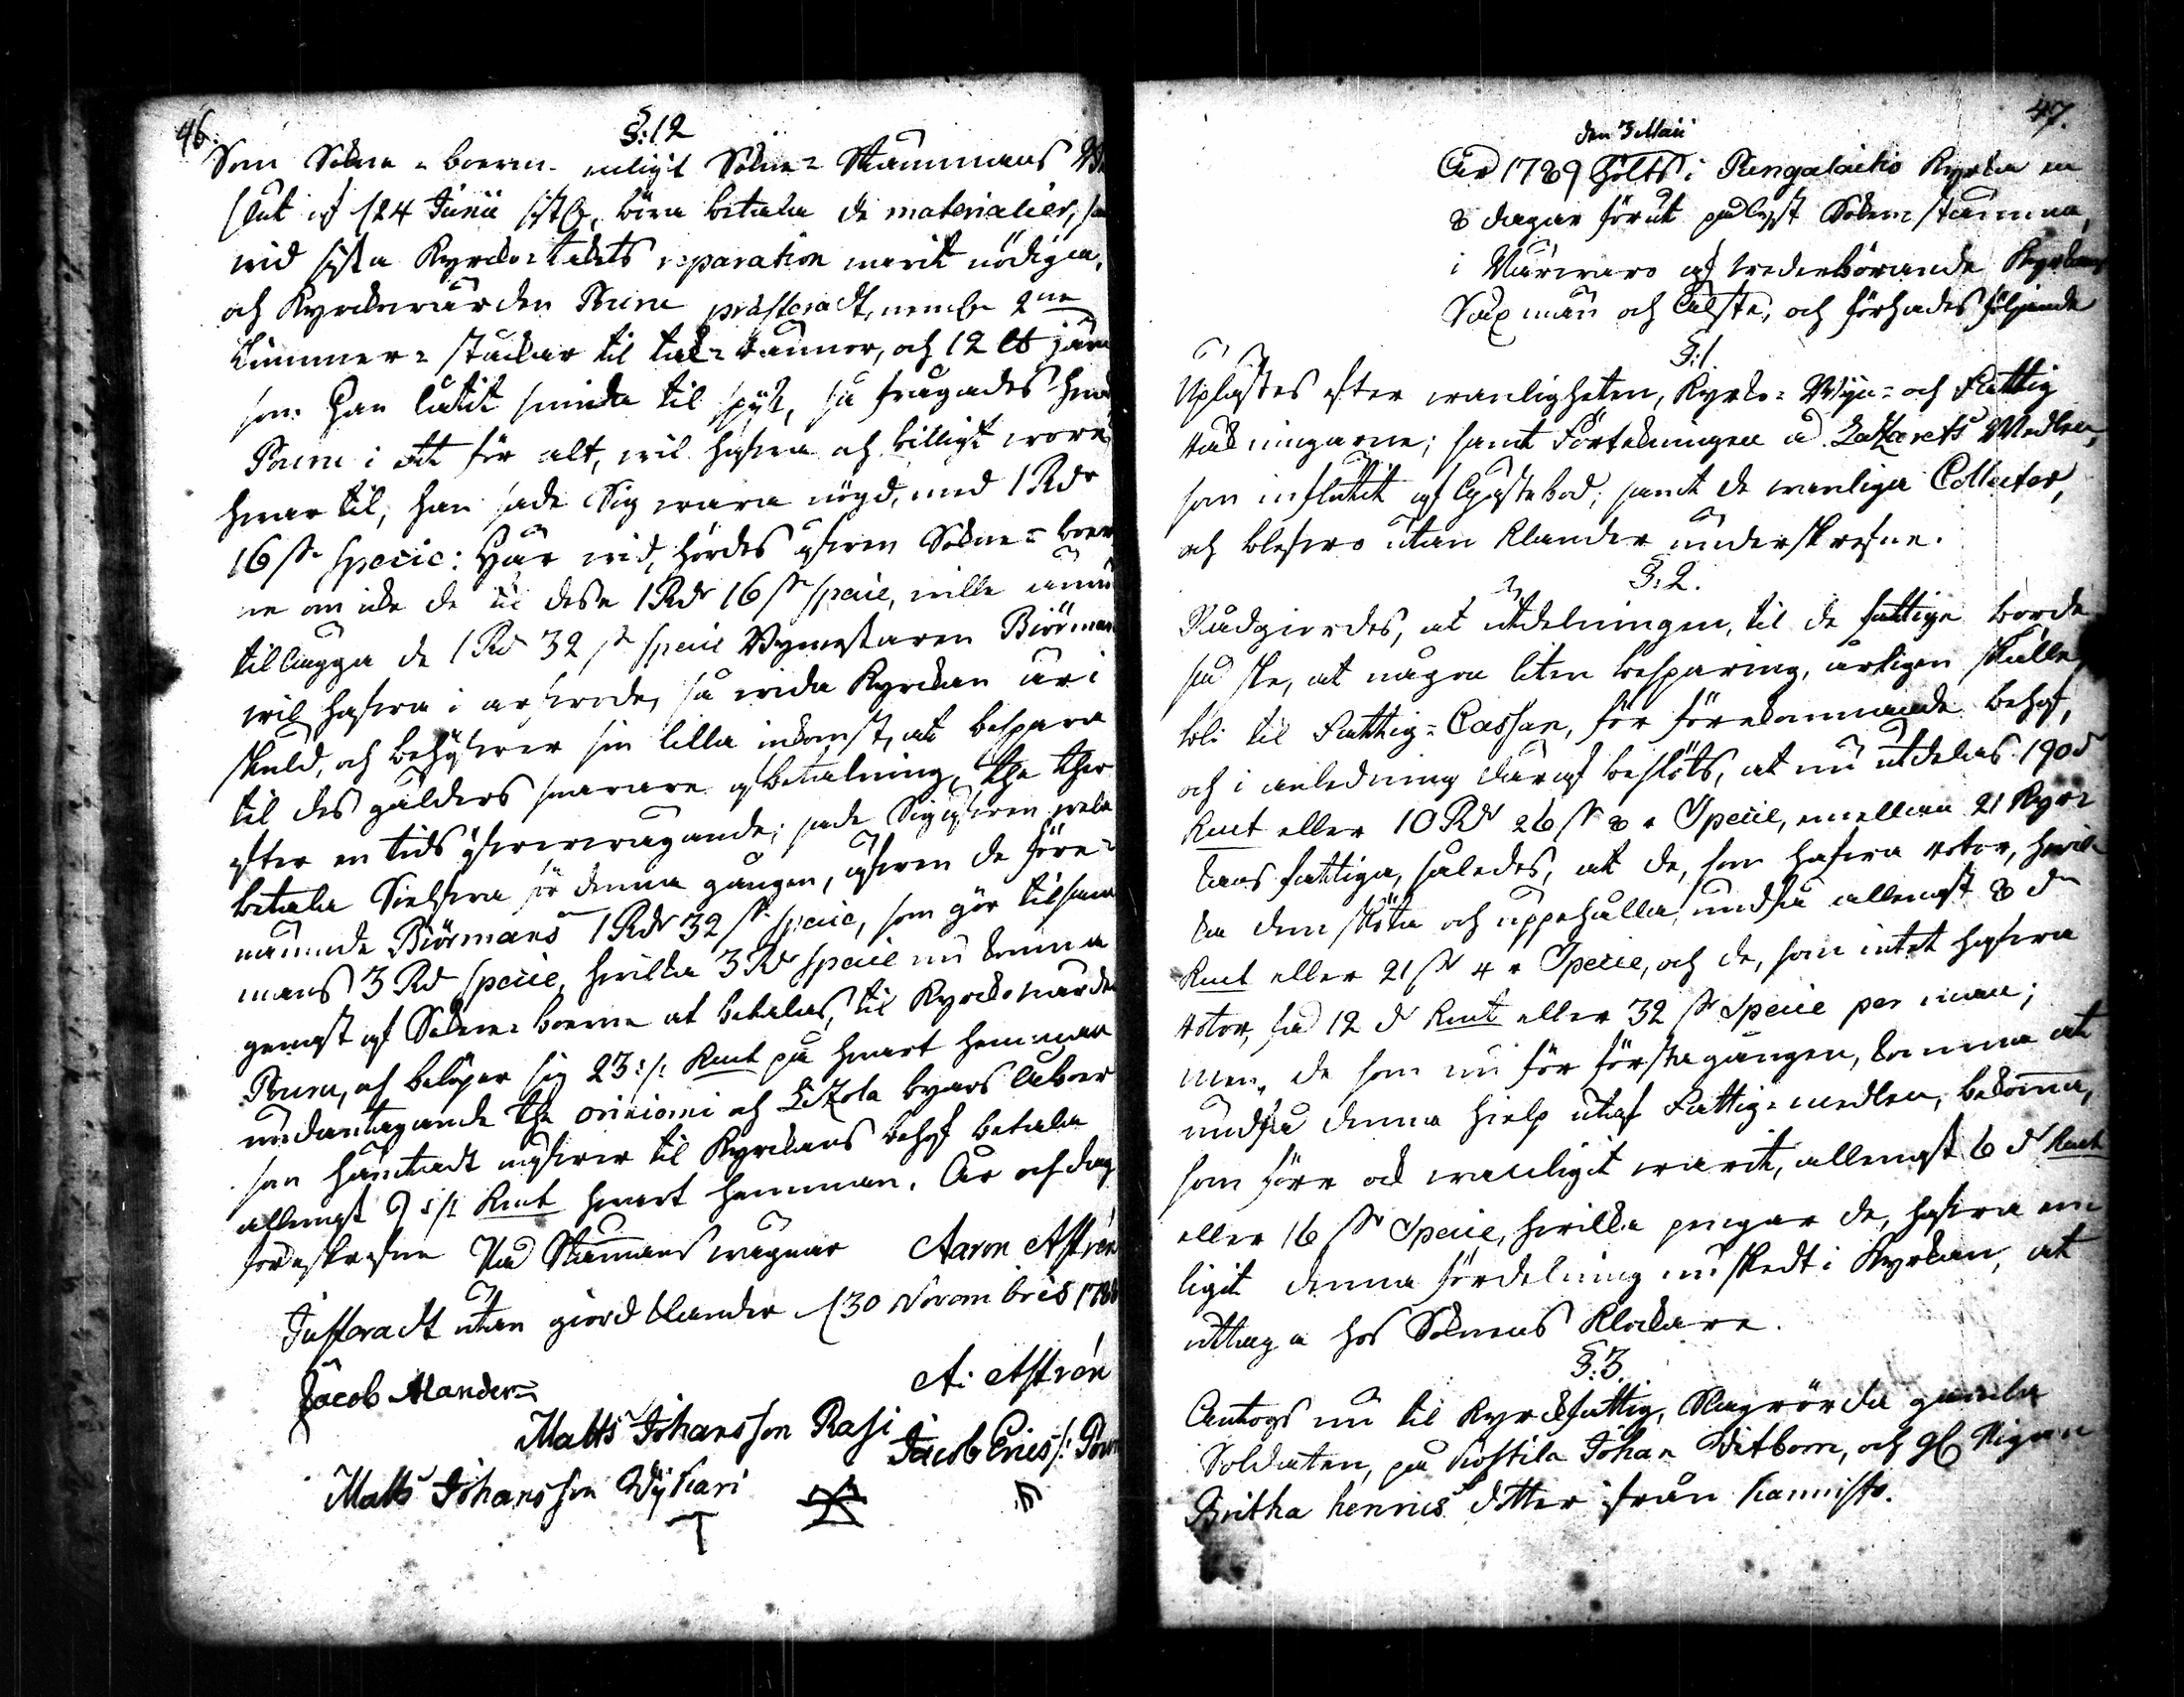 46.
§: 12
Som Sokne-boerne enligit Sokne-Stämmans
slut af d. 24 Junii sistl., böra betala de materialier,
wid sista Kyrko-takets reparation warit nödiga,
och Kyrckowärden Pouru præsteradt, nemln 2ne
timmer-stockar til tak-rännor, och 12 ℔ järn
som han låtit smida til spik, så frågades
Pouru i ett för alt, wil hafwa och billigt wore
hwartil, han sade Sig wara nögd, med 1 Rdr
16 sk. specie: Här wid, hördes äfwen Sokne-boer
ne om icke de til desse 1 Rdr 16 sk. specie, wille ännu
tillägga de 1 Rd 32 sk. specie Byggmästaren Biörman
wil hafwa i arfwode, så wida Kyrckan är i
skuld, och behöfwer sin lilla inkomst, at bespara
til des gälders snarare afbetalning, the ther
efter en tids öfwerwägande; sade Sig äfwen wela
betala Sielfwa för denna gången, äfwen de före-
nämnde Biörmans 1 Rdr 32 sk. specie, som gör tilsam
mans 3 Rd specie, hwilka 3 Rdr specie nu komma
genast af Sokne-boerne at betalas, til Kyrckowärden
Pouru, och belöper sig 23 :/: Kmt på hwart hemman
undantagande the oriniemi och Liztola byars Åboer
som hämtadt næfwer til Kyrckans behof betala
allenast 9 :/: Kmt hwart hemman. År och dag
föreskrefne På Stämmans wägnar Aaron Aströn
Justeradt utan giord klander d. 30 Novembris 1788
A. Aströn
Jacob Alander
Matts Johansson Rasi Jacob Erics/: Pour
Matts Johansson Wijkari
47.
den 3 Maii
År 1789 hölts i Pungalaitio Kyrka en
8 dagar förut pålyst Sockne stämma,
i Närwaro af wederbörande Kyrkans
Sexmän och Äldste, och förhades följande
§: 1.
Uplästes efter wanligheten, Kyrko- Wijn- och Fattig
räkningarne; samt Förtekningen å Lazarets Medlen,
som influtit af Gästebod, samt de wanliga Collecter,
och blefwo utan Klander underskrefne.
§: 2.
Rådgiordes, at utdelningen, til de fattige borde
så ske, at någon liten besparing, årligen skulle
bli til Fattig-Cassan, för förekommande behof,
och i anledning däraf beslöts, at nu utdelas 190 d
Kmt eller 10 Rdr 26 sk 8 r Specie, emellan 21 Kyr-
kans fattiga, således, at de, som hafwa rotor, hwil-
ka dem sköta och uppehålla, undfå allenast 8 dr
Kmt eller 21 sk 4 r Specie, och de, som intet hafwa
rotor, få 12 dr Kmt eller 32 sk Specie per man;
men, de som nu för första gången, komma at
undfå denna hielp utaf Fattig-medlen, bekomma,
som förr ock wanligit warit, allenast 6 dr Kmt
eller 16 sk Specie, hwilka pengar de, hafwa en-
ligit denna fördelning nu skedt i Kyrkan, at
uttaga hos Soknens Klockare.
§: 3.
Antogs nu til Kyrckfattig, Slagrörda gamla
Soldaten, på Kostila Johan Witbom, och gl. Pigan
Britha Henrics dotter från Kannisto.